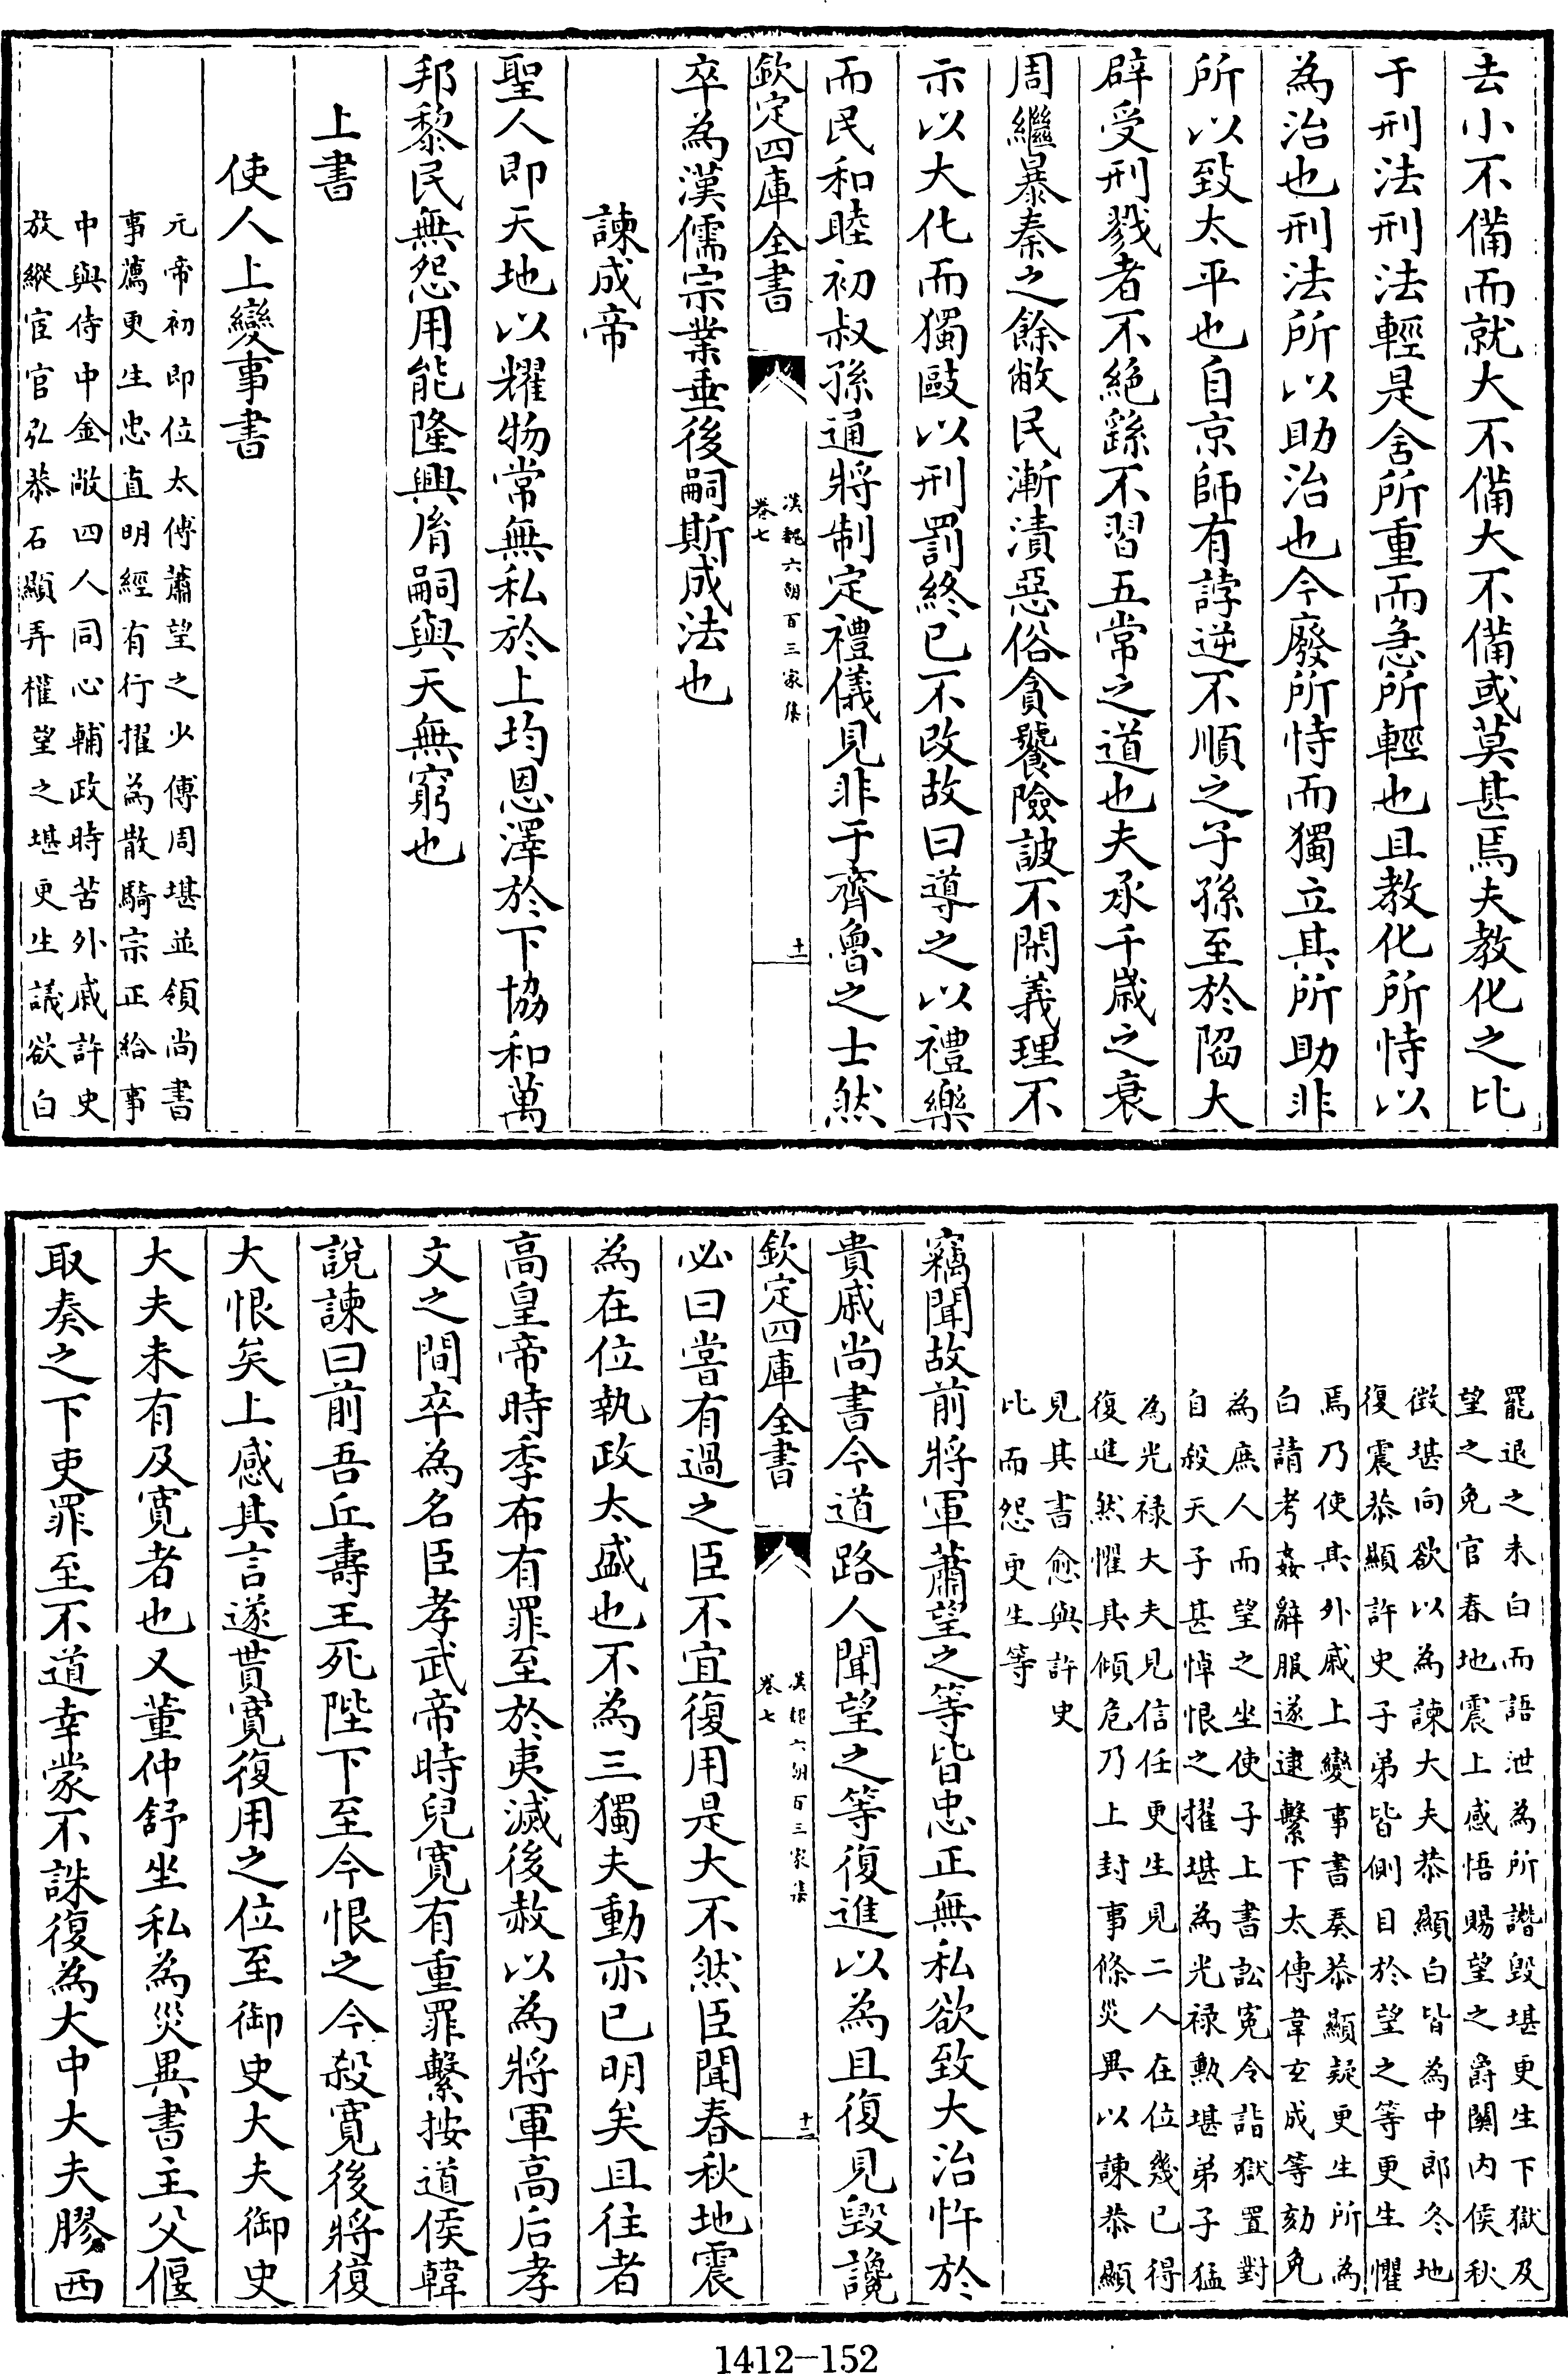 去小不備而就大不備大不備或莫甚焉夫教化之比
于刑法刑法輕是舍所重而急所輕也且教化所恃以
為治也刑法所以助治也今廢所恃而獨立其所助非
所以致太平也自京師有誖逆不順之子孫至於陷大
辟受刑戮者不絕繇不習五常之道也夫承千歲之衰
周繼暴秦之餘敝民漸漬惡俗貪饕險詖不閑義理不
示以大化而獨敺以刑罰終已不改故曰導之以禮樂
而民和睦初叔孫通將制定禮儀見非于齊魯之士然
欽定四庫全書
漢魏六朝百三家集
卷七
十一
卒為漢儒宗業垂後嗣斯成法也
諫成帝
聖人即天地以耀物常無私於上均恩澤於下協和萬
邦黎民無怨用能隆興胤嗣與天無窮也
上書
使人上變事書
元帝初即位太傅蕭望之少傅周堪並領尚書
事薦更生忠直明經有行擢為散騎宗正給事
中與侍中金敞四人同心輔政時苦外戚許史
放縱宦官弘恭石顯弄權望之堪更生議欲白
罷退之未白而語泄為所譖毀堪更生下獄及
望之免官春地震上感悟賜望之爵關內侯秋
徵堪向欲以為諫大夫恭顯白皆為中郎冬地
復震恭顯許史子弟皆側目於望之等更生懼
焉乃使其外戚上變事書奏恭顯疑更生所為
白請考姦辭服遂逮繫下太傅韋玄成等劾免
為庶人而望之坐使子上書訟冤令詣獄置對
自殺天子甚悼恨之擢堪為光祿勲堪弟子猛
為光祿大夫見信任更生見二人在位幾已得
復進然懼其傾危乃上封事條災異以諫恭顯
見其書愈與許史
比而怨更生等
竊聞故前將軍蕭望之等皆忠正無私欲致大治忤於
貴戚尚書今道路人聞望之等復進以為且復見毀讒
欽定四庫全書
漢魏六朝百三家集
卷七
十二
必曰嘗有過之臣不宜復用是大不然臣聞春秋地震
為在位執政太盛也不為三獨夫動亦已明矣且往者
高皇帝時季布有罪至於夷滅後赦以為將軍高后孝
文之間卒為名臣孝武帝時兒寬有重罪繫按道侯韓
說諫曰前吾丘壽王死陛下至今恨之今殺寬後將復
大恨矣上感其言遂貰寬復用之位至御史大夫御史
大夫未有及寬者也又董仲舒坐私為災異書主父偃
取奏之下吏罪至不道幸蒙不誅復為大中大夫膠西
1412-152